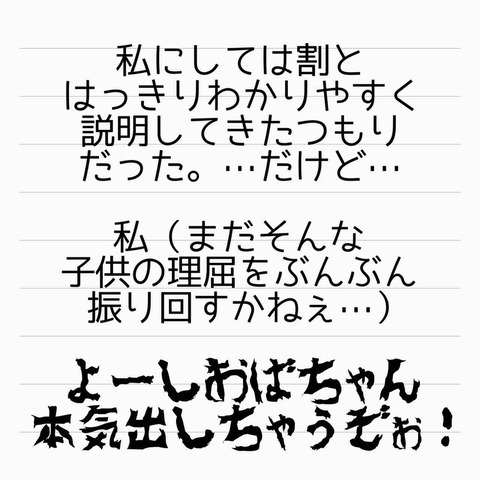 私にしては割と
はっきりわかりやすく
説明してきたつもり
だった。…だけど…
私（まだそんな
子供の理屈をぶんぶん
振り回すかねぇ…）
よーしおばちゃん
本気出しちゃうぞぉ！